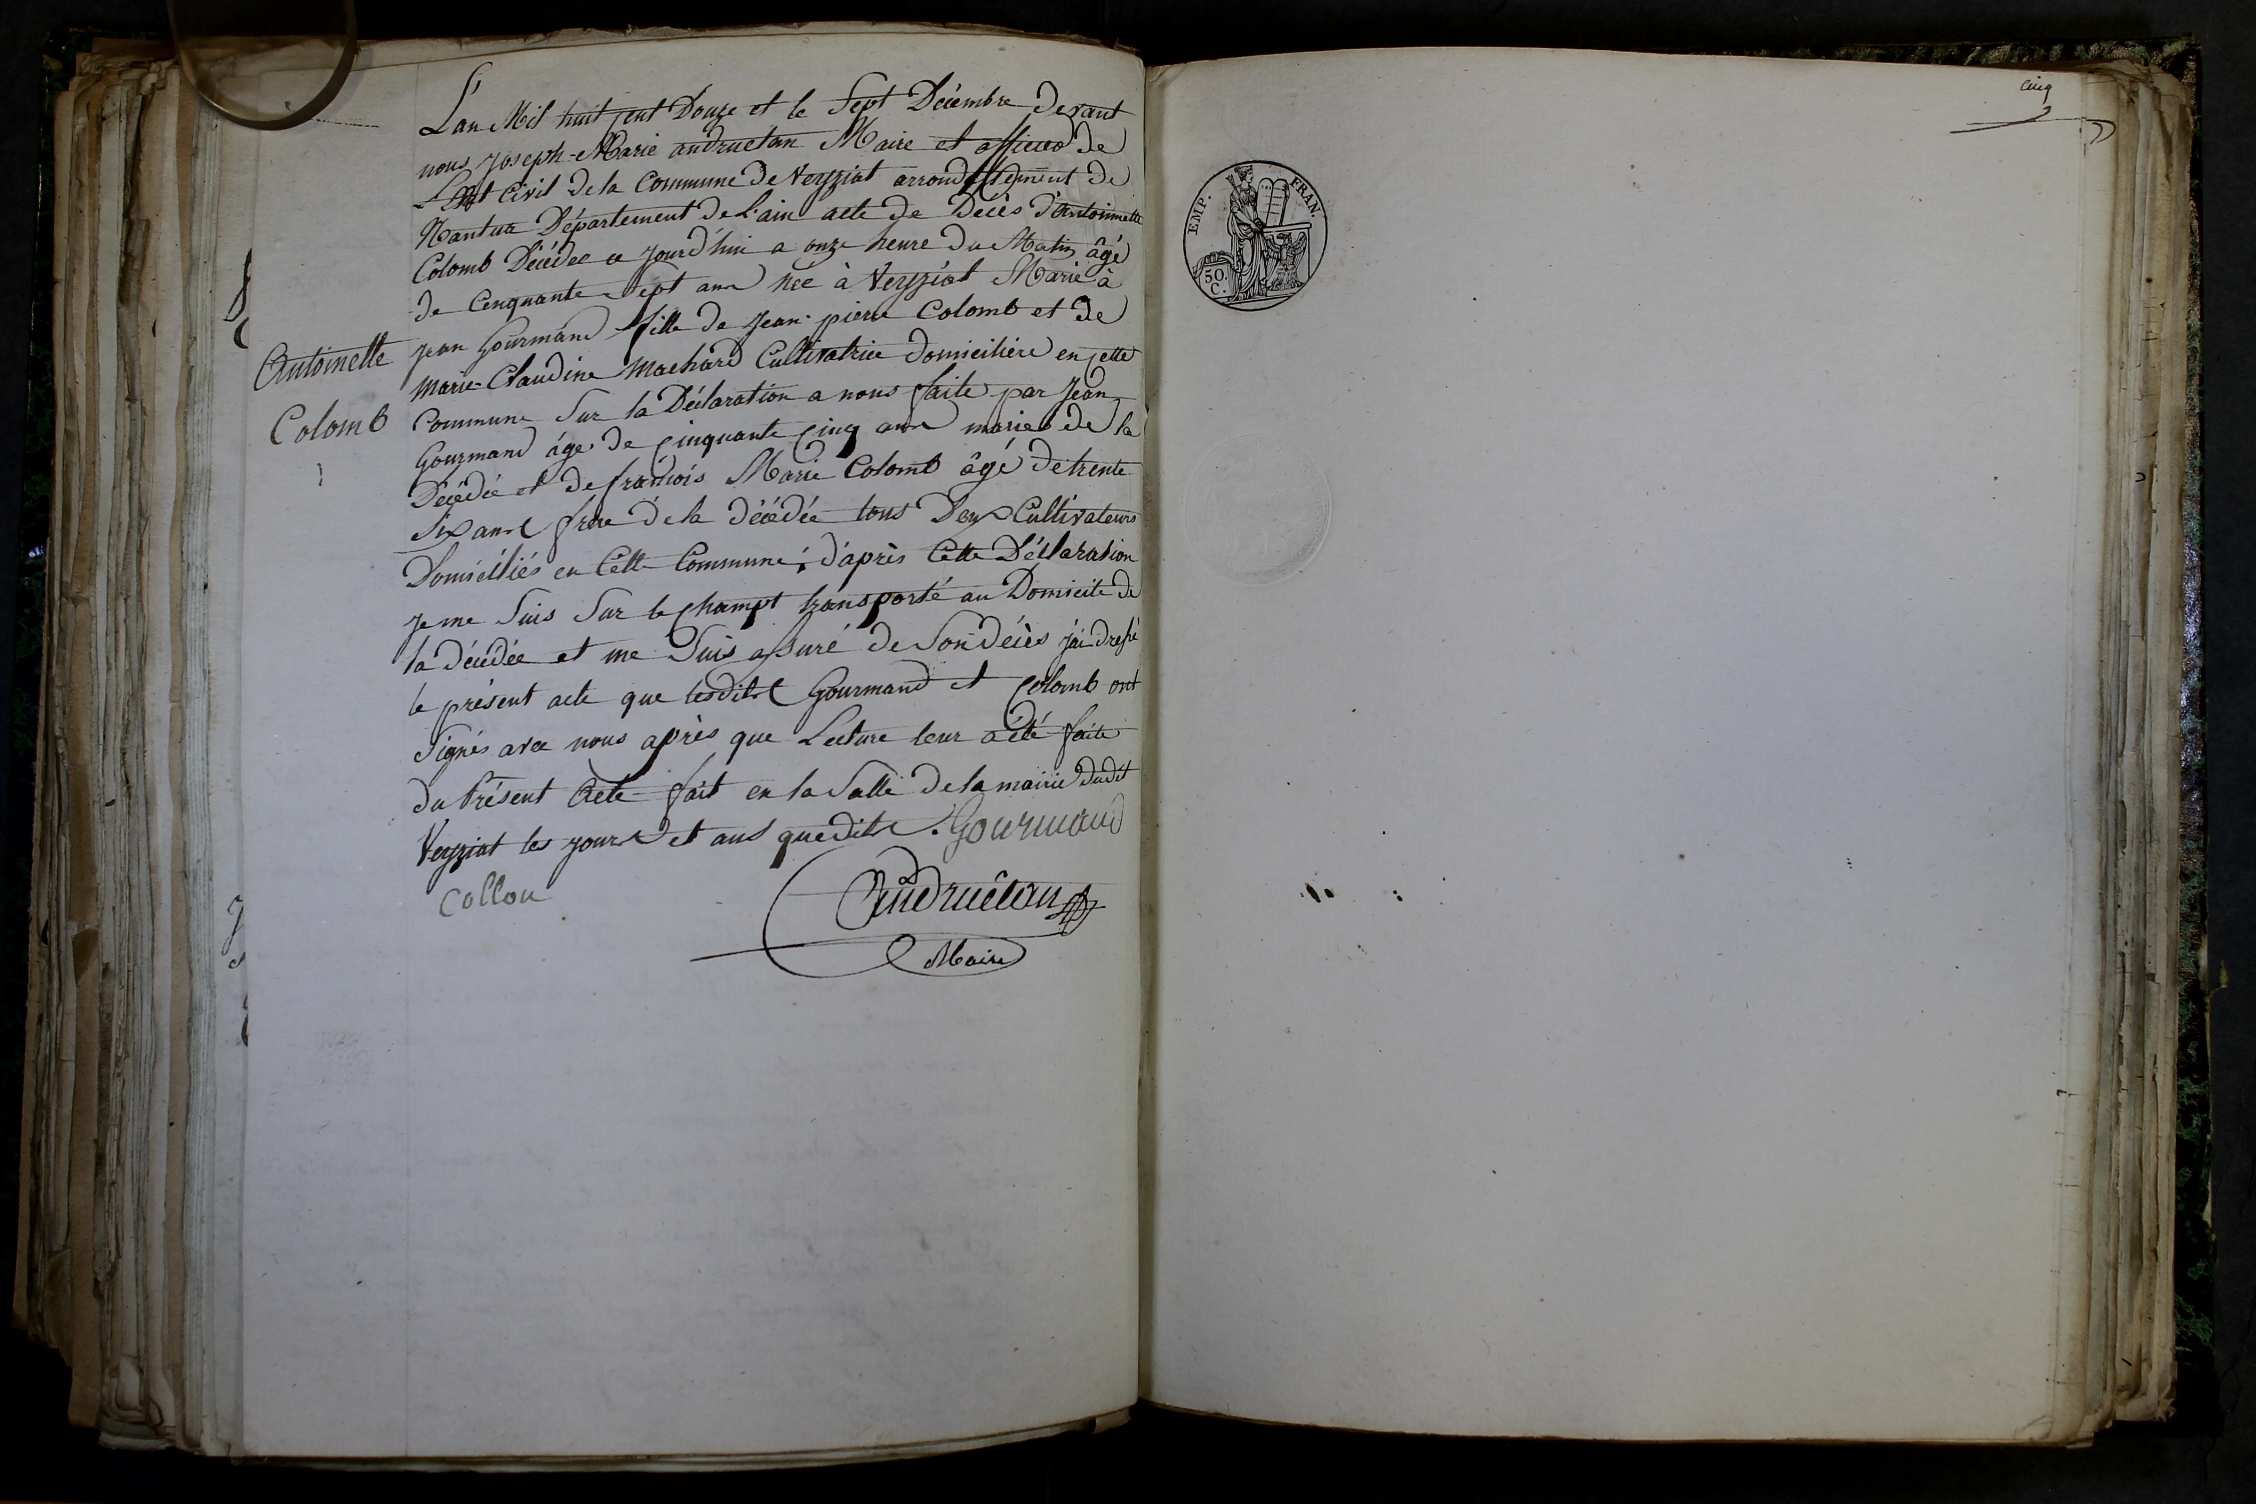 L'an Mil huit cent Douze et le Sept Décembre devant
nous Joseph-Marie andruetan Maire et officier de
L'Etat Civil de la Commune de Veyziat arrondissement de
Nantua Département de L'ain acte de Décès d'Antoinette
Colomb Décédée ce jourd'hui a onze heure du Matin âgé
de Cenquante Sept ans née à Veyziat Marié à
Jean Gourmand fille de Jean-pierre Colomb et de
Antoinette
Marie-Claudine Machard Cultivatrice domicilière en cette
Colomb
Commune Sur la Déclaration a nous faite par Jean
Gourmand âgé de Cinquante Cinq ans marie de la
Décédée et de francois Marie Colomb âgé de trente
Six ans frere de la décédée tous Deux Cultivateurs
Domiciliés en Cette Commune ; d'après Cette Déclaration
Je me Suis Sur le champt transporté au Domicile de
la décédée et me Suis assuré de Son décès j'ai dressé
le présent acte que lesdits Gourmand et Colomb ont
Signés avec nous après que Lecture leur a été faite
du Présent Acte fait en la Salle de la mairie dudit
Veyziat les jours et ans que dits. Gourmand
Collon
Andruétan
Maire
cinq
EMP. FRAN.
50.
C.